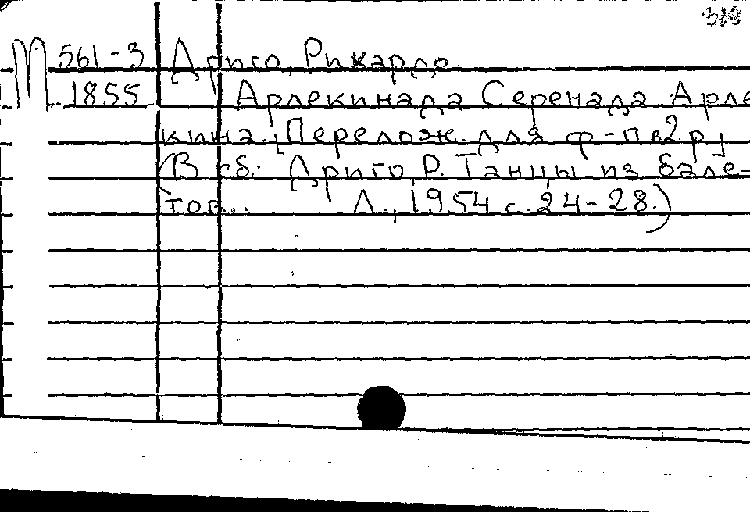 М 561-3 Дриго, Рикардо
1855 Арлекинада Серенада Арле
кина. Перелож. для ф-п в 2 р.
(В сб.: Дриго, Р. Танцы из бале-
тов.. Л., 1954 с. 24-28.)